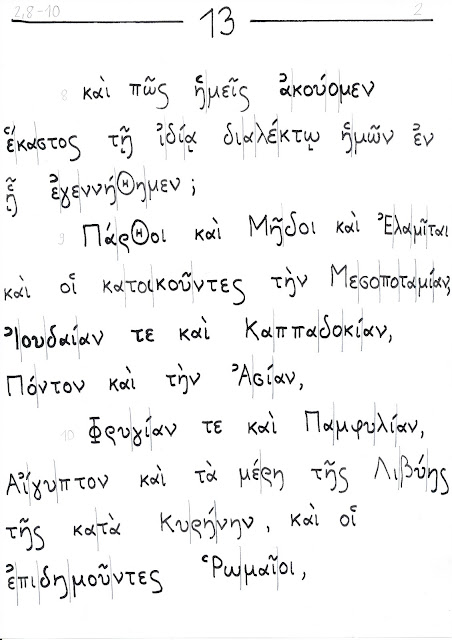 2,8-10 13 2
8 καὶ πῶς ἡμεῖς ἀκούομεν
ἕκαστος τῇ ἰδίᾳ διαλέκτῳ ἡμῶν ἐν
ᾗ ἐγεννήθημεν ;
9 Πάρθοι καὶ Μῆδοι καὶ Ἐλαμῖται
καὶ οἱ κατοικοῦντες τὴν Μεσοποταμίαν,
Ἰουδαίαν τε καὶ Καππαδοκίαν,
Πόντον καὶ τὴν Ἀσίαν,
10 Φρυγίαν τε καὶ Παμφυλίαν,
Αἴγυπτον καὶ τὰ μέρη τῆς Λιβύης
τῆς κατὰ Κυρήνην, καὶ οἱ
ἐπιδημοῦντες Ῥωμαῖοι,